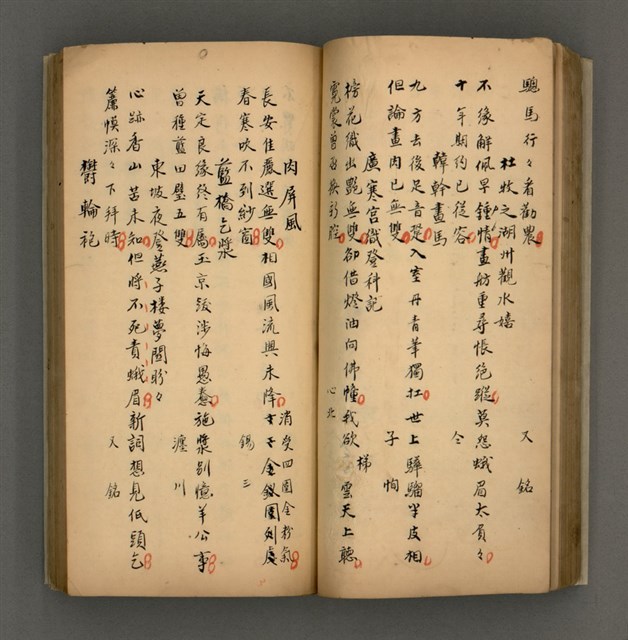 驄馬行々看勸農　又銘
杜牧之湖州觀水嬉
不緣解佩早鍾情畫舫重尋悵絕蹤莫怨蛾眉太負々
十年期約已從容　仝
韓幹畫馬
九方去後足音楚入室丹青筆獨扛世上驊騮半皮相
但論畫肉已無雙　子恂
廣寒宮織登科記
榜花織出艷無雙卻借燈油向佛幢我欲梯雲天上聽
霓裳曾 新腔　心北
肉屏風
長安佳麗選無雙相國風流興未降十二金釵圍列處
消受四圍金粉氣
春寒吹不到紗窗　錫三
藍橋乞漿
天定良緣終有屬玉京後涉悔愚惷施漿別憶羊公事
曾種藍田璧五雙　瀍川
東坡夜登燕子樓夢關盼々
心跡香山苦未知但將不死責蛾眉新詞想見低頭乞
簾幙深々下拜時　又銘
鬱輪袍